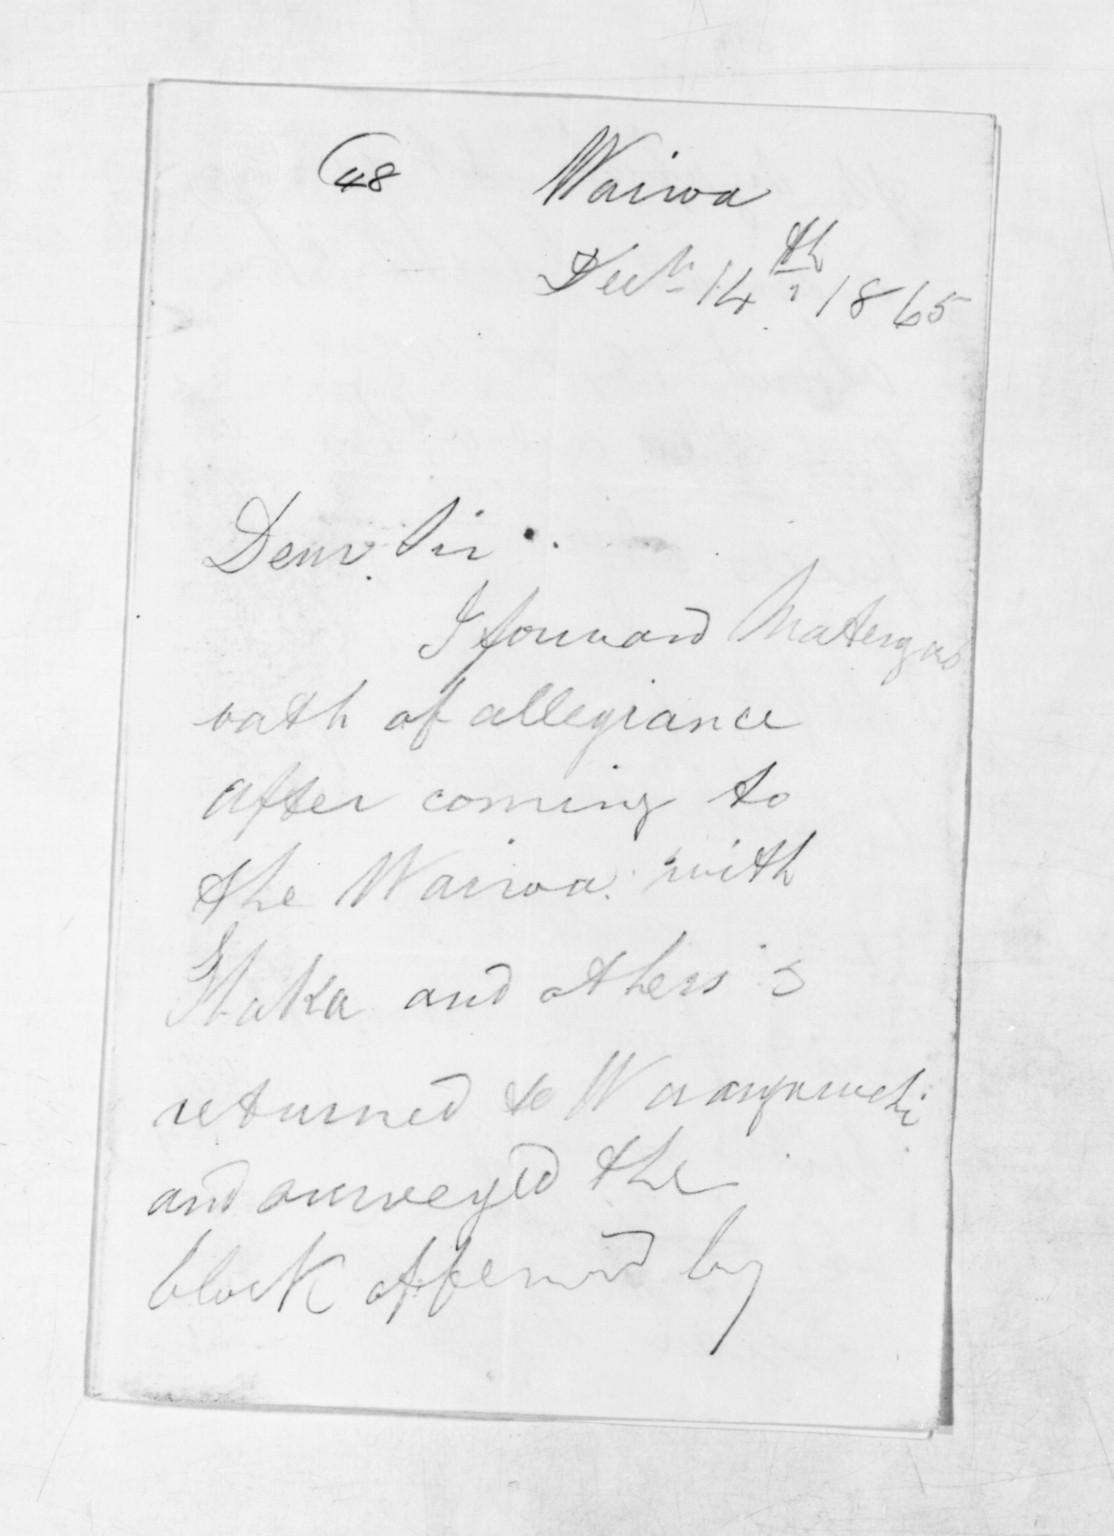 48
Wairoa
Decr 14th 1865
Dear Sir
I forward Matengas
oath of allegiance
after coming to
the Wairoa with
Ihaka and others I
returned to
and surveyed the
block offered by